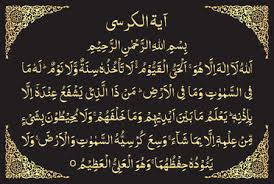 آية الكرسى
بِسْمِ اللهِ الرَّحْمٰنِ الرَّحِيْمِ
اَللهُ لَآ اِلٰهَ اِلَّا هُوَ ۚ اَلْحَيُّ الْقَيُّوْمُ ۚ لَا تَأْخُذُهٗ سِنَةٌ وَّلَا نَوْمٌ ۗ لَهٗ مَا
فِى السَّمٰوٰتِ وَمَا فِى الْاَرْضِ ۗ مَنْ ذَا الَّذِيْ يَشْفَعُ عِنْدَهٗٓ اِلَّا
بِاِذْنِهٖ ۗ يَعْلَمُ مَا بَيْنَ اَيْدِيْهِمْ وَمَا خَلْفَهُمْ ۚ وَلَا يُحِيْطُوْنَ بِشَيْءٍ
مِّنْ عِلْمِهٖٓ اِلَّا بِمَا شَآءَ ۚ وَسِعَ كُرْسِيُّهُ السَّمٰوٰتِ وَالْاَرْضَ ۚ وَلَا
يَـُٔوْدُهٗ حِفْظُهُمَا ۚ وَهُوَ الْعَلِيُّ الْعَظِيْمُ ○